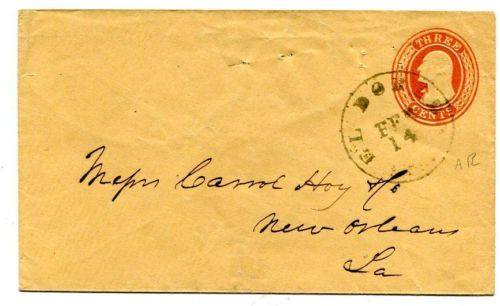 THREE
CENTS
EL DO
FE
14
AR
Messrs Carrol Hoy & Co
New Orleans
La